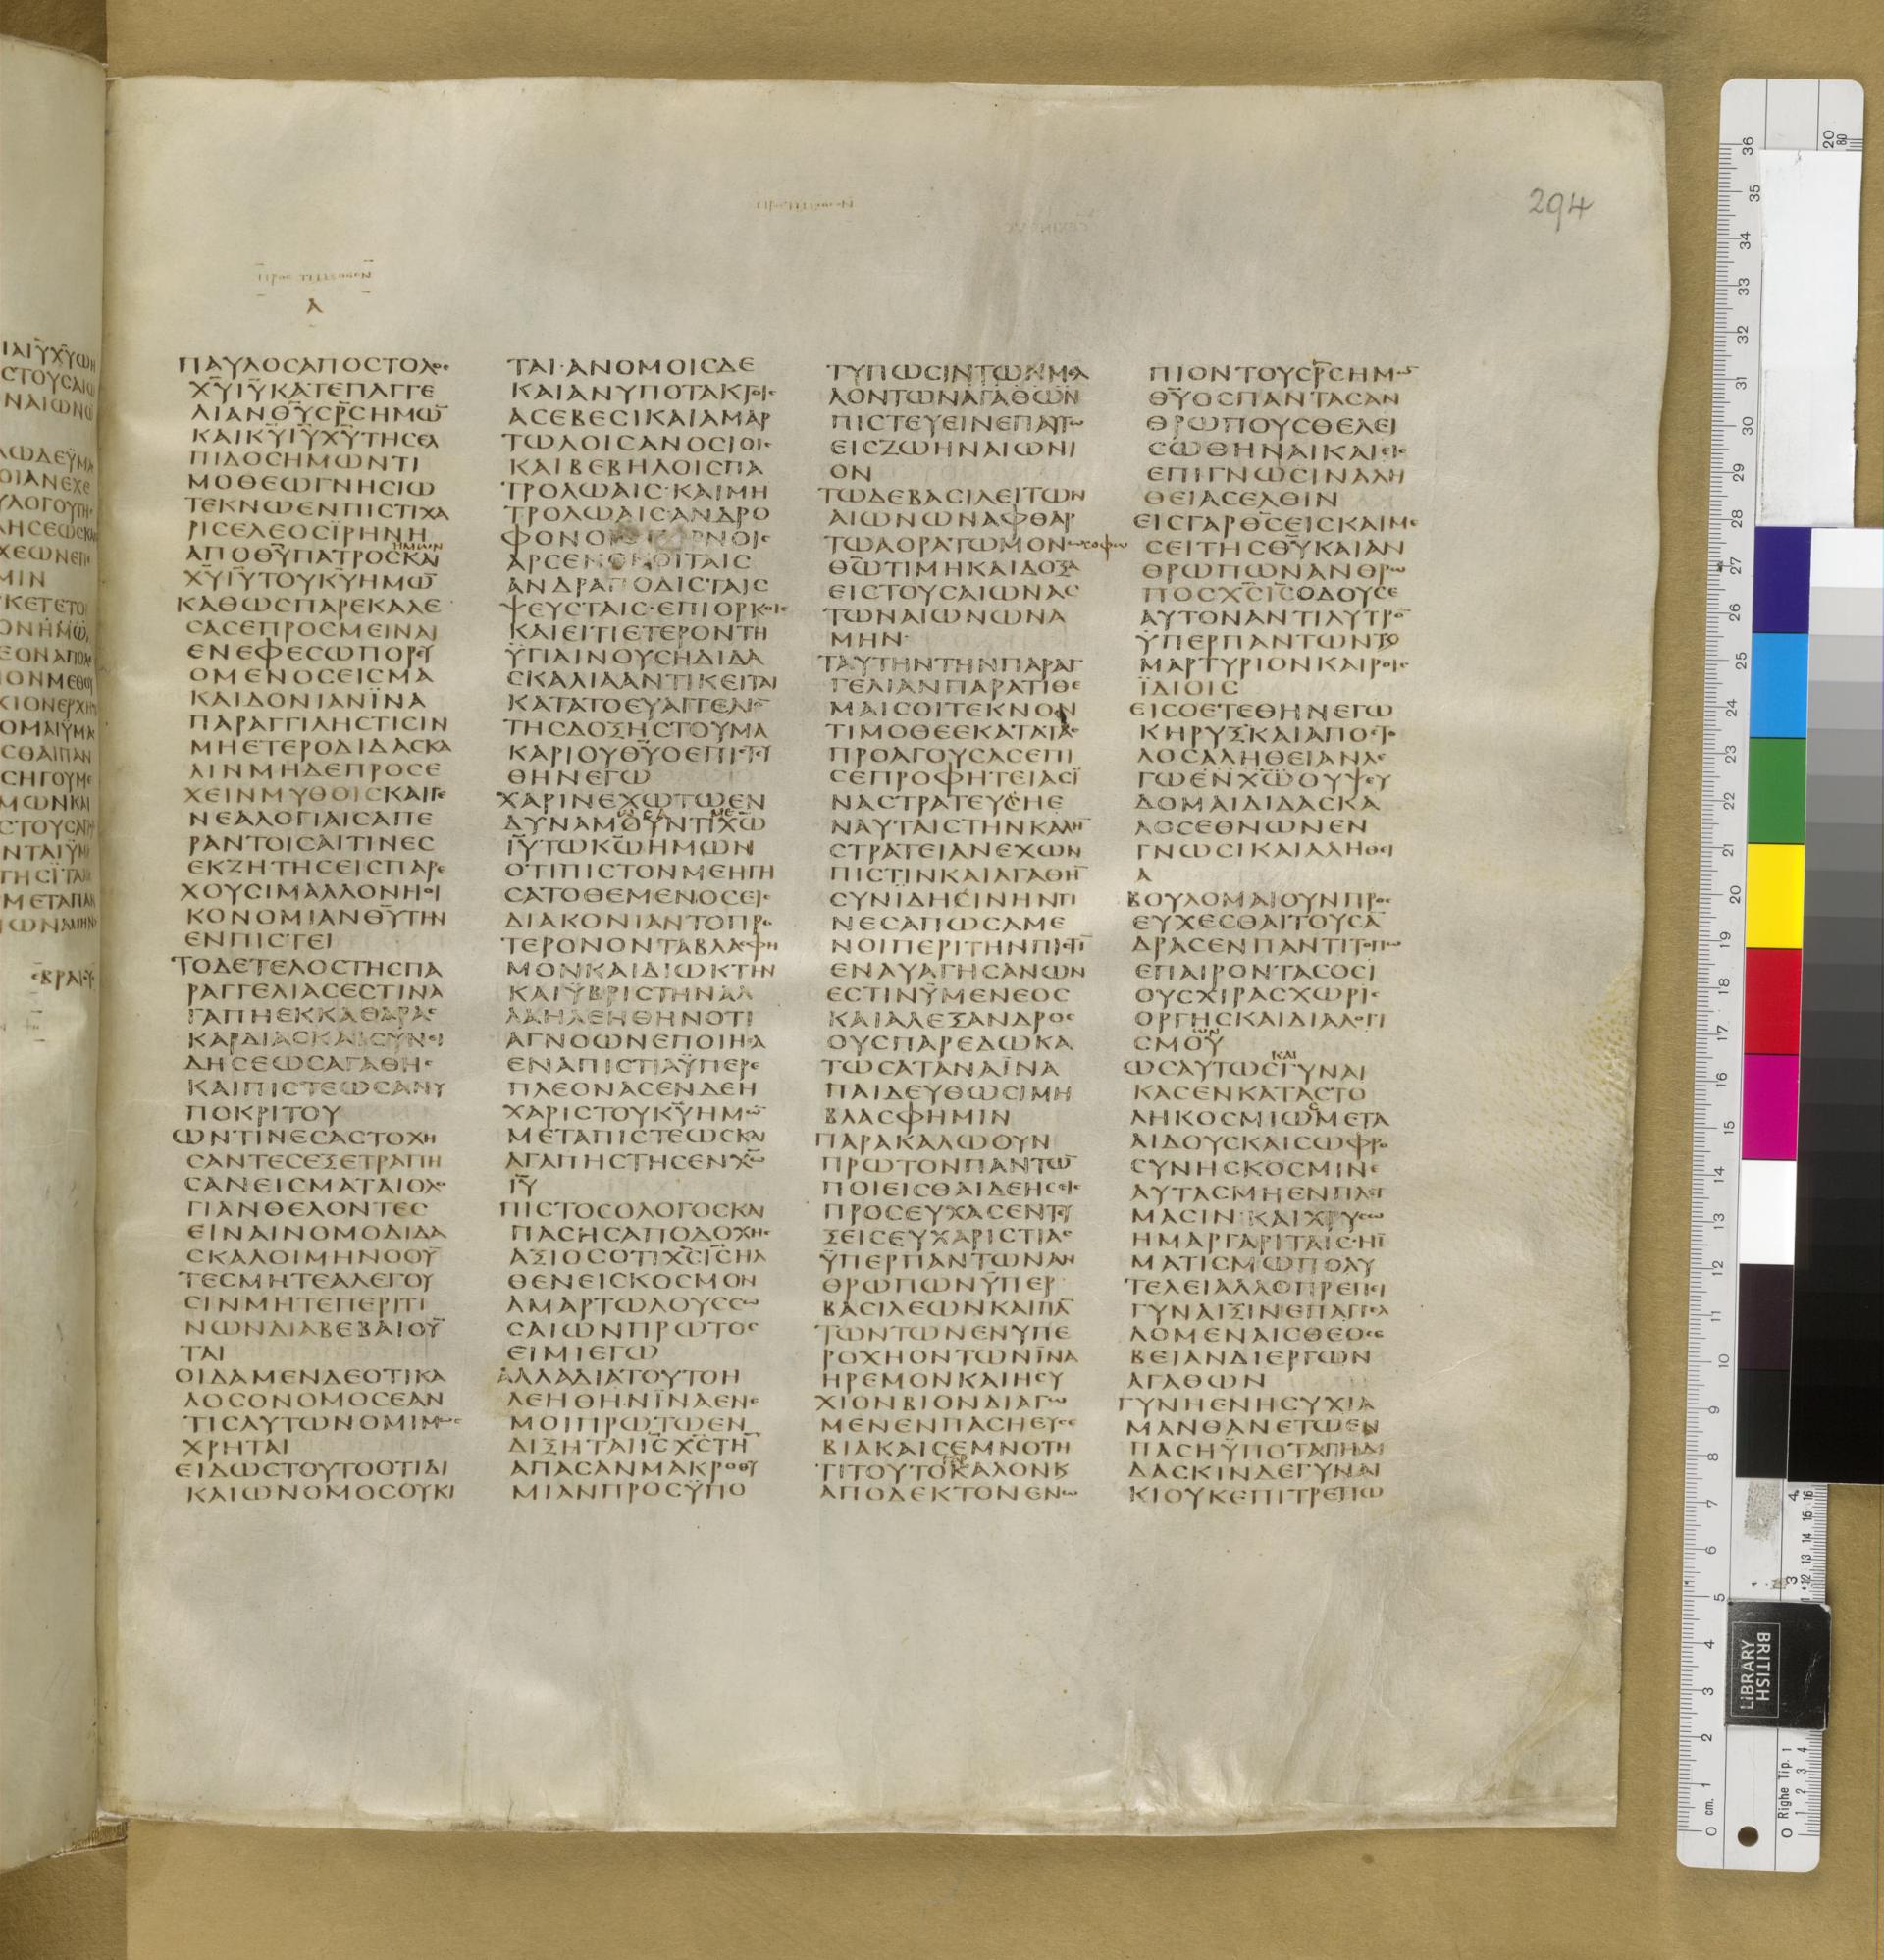 294
Α
ΠΑΥΛΟϹΑΠΟϹΤΟΛΟϹ
Χ̅Υ̅Ι̅Υ̅ΚΑΤΕΠΑΓΓΕ
ΛΙΑΝΘ̅Υ̅Ϲ̅Ρ̅Ϲ̅ΗΜΩ̅
ΚΑΙΚ̅Υ̅Ι̅Υ̅Χ̅Υ̅ΤΗϹΕΛ
ΠΙΔΟϹΗΜΩΝΤΙ
ΜΟΘΕΩΓΝΗϹΙΩ
ΤΕΚΝΩΕΝΠΙϹΤΙΧΑ
ΡΙϹΕΛΕΟϹΪΡΗΝΗ
ΗΜΩΝ
ΑΠΟΘ̅Υ̅ΠΑΤΡΟϹΚΑΙ
Χ̅Υ̅Ι̅Υ̅ΤΟΥΚ̅Υ̅ΗΜΩ̅
ΚΑΘΩϹΠΑΡΕΚΑΛΕ
ϹΑϹΕΠΡΟϹΜΕΙΝΑΙ
ΕΝΕΦΕϹΩΠΟΡΕΥ
ΟΜΕΝΟϹΕΙϹΜΑ
ΚΑΙΔΟΝΙΑΝΪΝΑ
ΠΑΡΑΓΓΙΛΗϹΤΙϹΙΝ
ΜΗΕΤΕΡΟΔΙΔΑϹΚΑ
ΛΙΝΜΗΔΕΠΡΟϹΕ
ΧΕΙΝΜΥΘΟΙϹΚΑΙΓΕ
ΝΕΑΛΟΓΙΑΙϹΑΠΕ
ΡΑΝΤΟΙϹΑΙΤΙΝΕϹ
ΕΚΖΗΤΗϹΕΙϹΠΑΡΕ
ΧΟΥϹΙΜΑΛΛΟΝΗΟΙ
ΚΟΝΟΜΙΑΝΘ̅Υ̅ΤΗΝ
ΕΝΠΙϹΤΕΙ
ΤΟΔΕΤΕΛΟϹΤΗϹΠΑ
ΡΑΓΓΕΛΙΑϹΕϹΤΙΝΑ
ΓΑΠΗΕΚΚΑΘΑΡΑϹ
ΚΑΡΔΙΑϹΚΑΙϹΥΝΕΙ
ΔΗϹΕΩϹΑΓΑΘΗϹ
ΚΑΙΠΙϹΤΕΩϹΑΝΥ
ΠΟΚΡΙΤΟΥ
ΩΝΤΙΝΕϹΑϹΤΟΧΗ
ϹΑΝΤΕϹΕΞΕΤΡΑΠΗ
ϹΑΝΕΙϹΜΑΤΑΙΟΛΟ
ΓΙΑΝΘΕΛΟΝΤΕϹ
ΕΙΝΑΙΝΟΜΟΔΙΔΑ
ϹΚΑΛΟΙΜΗΝΟΟΥ̅
ΤΕϹΜΗΤΕΑΛΕΓΟΥ
ϹΙΝΜΗΤΕΠΕΡΙΤΙ
ΝΩΝΔΙΑΒΕΒΑΙΟΥ̅
ΤΑΙ
ΟΙΔΑΜΕΝΔΕΟΤΙΚΑ
ΛΟϹΟΝΟΜΟϹΕΑΝ
ΤΙϹΑΥΤΩΝΟΜΙΜΩϹ
ΧΡΗΤΑΙ
ΕΙΔΩϹΤΟΥΤΟΟΤΙΔΙ
ΚΑΙΩΝΟΜΟϹΟΥΚΙ
ΤΑΙ·ΑΝΟΜΟΙϹΔΕ
ΚΑΙΑΝΥΠΟΤΑΚΤΟΙϹ
ΑϹΕΒΕϹΙΚΑΙΑΜΑΡ
ΤΩΛΟΙϹΑΝΟϹΙΟΙϹ
ΚΑΙΒΕΒΗΛΟΙϹΠΑ
ΤΡΟΛΩΑΙϹ·ΚΑΙΜΗ
ΤΡΟΛΩΑΙϹ·ΑΝΔΡΟ
ΦΟΝΟΙϹΠΟΡΝΟΙϹ
ΑΡϹΕΝΟΚΟΙΤΑΙϹ
ΑΝΔΡΑΠΟΔΙϹΤΑΙϹ
ΨΕΥϹΤΑΙϹ·ΕΠΙΟΡΚΟΙϹ
ΚΑΙΕΙΤΙΕΤΕΡΟΝΤΗ
ΫΓΙΑΙΝΟΥϹΗΔΙΔΑ
ϹΚΑΛΙΑΑΝΤΙΚΕΙΤΑΙ
ΚΑΤΑΤΟΕΥΑΓΓΕΛΙΟ̅
ΤΗϹΔΟΞΗϹΤΟΥΜΑ
ΚΑΡΙΟΥΘ̅Υ̅ΟΕΠΙϹΤΕΥ
ΘΗΝΕΓΩ
ΧΑΡΙΝΕΧΩΤΩΕΝ
ΔΥΝΑΜΟΥΝΤΙΧ̅Ω̅
Ι̅Υ̅ΤΩΚ̅Ω̅ΗΜΩΝ
ΟΤΙΠΙϹΤΟΝΜΕΗΓΗ
ϹΑΤΟΘΕΜΕΝΟϹΕΙϹ
ΔΙΑΚΟΝΙΑΝΤΟΠΡΟ
ΤΕΡΟΝΟΝΤΑΒΛΑϹΦΗ
ΜΟΝΚΑΙΔΙΩΚΤΗΝ
ΚΑΙΫΒΡΙϹΤΗΝΑΛ
ΛΑΗΛΕΗΘΗΝΟΤΙ
ΑΓΝΟΩΝΕΠΟΙΗϹΑ
ΕΝΑΠΙϹΤΙΑΫΠΕΡΕ
ΠΛΕΟΝΑϹΕΝΔΕΗ
ΧΑΡΙϹΤΟΥΚ̅Υ̅ΗΜΩ̅
ΜΕΤΑΠΙϹΤΕΩϹΚΑΙ
ΑΓΑΠΗϹΤΗϹΕΝΧ̅Ω̅
Ι̅Υ̅
ΠΙϹΤΟϹΟΛΟΓΟϹΚΑΙ
ΠΑϹΗϹΑΠΟΔΟΧΗϹ
ΑΞΙΟϹΟΤΙΧ̅Ϲ̅Ι̅Ϲ̅ΗΛ
ΘΕΝΕΙϹΚΟϹΜΟΝ
ΑΜΑΡΤΩΛΟΥϹϹΩ
ϹΑΙΩΝΠΡΩΤΟϹ
ΕΙΜΙΕΓΩ
ΑΛΛΑΔΙΑΤΟΥΤΟΗ
ΛΕΗΘΗΝΪΝΑΕΝΕ
ΜΟΙΠΡΩΤΩΕΝ
ΔΙΞΗΤΑΙΙ̅Ϲ̅Χ̅Ϲ̅ΤΗ̅
ΑΠΑϹΑΝΜΑΚΡΟΘΥ
ΜΙΑΝΠΡΟϹΫΠΟ
ΤΥΠΩϹΙΝΤΩΝΜΕΛ
ΛΟΝΤΩΝΑΓΑΘΩΝ
ΠΙϹΤΕΥΕΙΝΕΠΑΥΤΩ
ΕΙϹΖΩΗΝΑΙΩΝΙ
ΟΝ
ΤΩΔΕΒΑϹΙΛΕΙΤΩΝ
ΑΙΩΝΩΝΑΦΘΑΡ
ΤΩΑΟΡΑΤΩΜΟΝΩϹΟΦΩ
Θ̅Ω̅ΤΙΜΗΚΑΙΔΟΞΑ
ΕΙϹΤΟΥϹΑΙΩΝΑϹ
ΤΩΝΑΙΩΝΩΝΑ
ΜΗΝ·
ΤΑΥΤΗΝΤΗΝΠΑΡΑΓ
ΓΕΛΙΑΝΠΑΡΑΤΙΘΕ
ΜΑΙϹΟΙΤΕΚΝΟΝ
ΤΙΜΟΘΕΕΚΑΤΑΤΑϹ
ΠΡΟΑΓΟΥϹΑϹΕΠΙ
ϹΕΠΡΟΦΗΤΕΙΑϹΪ
ΝΑϹΤΡΑΤΕΥϹΗΕ
ΝΑΥΤΑΙϹΤΗΝΚΑΛΗ̅
ϹΤΡΑΤΕΙΑΝΕΧΩΝ
ΠΙϹΤΙΝΚΑΙΑΓΑΘΗ̅
ϹΥΝΪΔΗϹΙΝΗΝΤΙ
ΝΕϹΑΠΩϹΑΜΕ
ΝΟΙΠΕΡΙΤΗΝΠΙϹΤΙ̅
ΕΝΑΥΑΓΗϹΑΝΩΝ
ΕϹΤΙΝΫΜΕΝΕΟϹ
ΚΑΙΑΛΕΞΑΝΔΡΟϹ
ΟΥϹΠΑΡΕΔΩΚΑ
ΤΩϹΑΤΑΝΑΪΝΑ
ΠΑΙΔΕΥΘΩϹΙΜΗ
ΒΛΑϹΦΗΜΙΝ
ΠΑΡΑΚΑΛΩΟΥΝ
ΠΡΩΤΟΝΠΑΝΤΩ̅
ΠΟΙΕΙϹΘΑΙΔΕΗϹΕΙϹ
ΠΡΟϹΕΥΧΑϹΕΝΤΕΥ
ΞΕΙϹΕΥΧΑΡΙϹΤΙΑϹ
ΫΠΕΡΠΑΝΤΩΝΑΝ
ΘΡΩΠΩΝΫΠΕΡ
ΒΑϹΙΛΕΩΝΚΑΙΠΑ̅
ΤΩΝΤΩΝΕΝΥΠΕ
ΡΟΧΗΟΝΤΩΝΪΝΑ
ΗΡΕΜΟΝΚΑΙΗϹΥ
ΧΙΟΝΒΙΟΝΔΙΑΓΩ
ΜΕΝΕΝΠΑϹΗΕΥϹΕ
ΒΙΑΚΑΙϹΕΜΝΟΤΗ
ΓΑΡ
ΤΙΤΟΥΤΟΚΑΛΟΝΚΑΙ
ΑΠΟΔΕΚΤΟΝΕΝΩ
ΠΙΟΝΤΟΥϹ̅Ρ̅Ϲ̅ΗΜΩ̅
Θ̅Υ̅ΟϹΠΑΝΤΑϹΑΝ
ΘΡΩΠΟΥϹΘΕΛΕΙ
ϹΩΘΗΝΑΙΚΑΙΕΙϹ
ΕΠΙΓΝΩϹΙΝΑΛΗ
ΘΕΙΑϹΕΛΘΙΝ
ΕΙϹΓΑΡΘ̅Ϲ̅ΕΙϹΚΑΙΜΕ
ϹΕΙΤΗϹΘ̅Υ̅ΚΑΙΑΝ
ΘΡΩΠΩΝΑΝΘΡΩ
ΠΟϹΧ̅Ϲ̅Ι̅Ϲ̅ΟΔΟΥϹΕ
ΑΥΤΟΝΑΝΤΙΛΥΤΡΟ̅
ΫΠΕΡΠΑΝΤΩΝΤΟ
ΜΑΡΤΥΡΙΟΝΚΑΙΡΟΙϹ
ΪΔΙΟΙϹ
ΕΙϹΟΕΤΕΘΗΝΕΓΩ
ΚΗΡΥΞΚΑΙΑΠΟϹΤΟ
ΛΟϹΑΛΗΘΕΙΑΝΛΕ
ΓΩΕΝΧ̅Ω̅ΟΥΨΕΥ
ΔΟΜΑΙΔΙΔΑϹΚΑ
ΛΟϹΕΘΝΩΝΕΝ
ΓΝΩϹΙΚΑΙΑΛΗΘΕΙ
Α
ΒΟΥΛΟΜΑΙΟΥΝΠΡΟϹ
ΕΥΧΕϹΘΑΙΤΟΥϹΑ̅
ΔΡΑϹΕΝΠΑΝΤΙΤΟΠΩ
ΕΠΑΙΡΟΝΤΑϹΟϹΙ
ΟΥϹΧΙΡΑϹΧΩΡΙϹ
ΟΡΓΗϹΚΑΙΔΙΑΛΟΓΙ
ϹΜΟΥ
ΚΑΙ
ΩϹΑΥΤΩϹΓΥΝΑΙ
ΚΑϹΕΝΚΑΤΑϹΤΟ
ΛΗΚΟϹΜΙΩΜΕΤΑ
ΑΙΔΟΥϹΚΑΙϹΩΦΡΟ
ϹΥΝΗϹΚΟϹΜΙΝΕ
ΑΥΤΑϹΜΗΕΝΠΛΕΓ
ΜΑϹΙΝ·ΚΑΙΧΡΥϹΩ
ΗΜΑΡΓΑΡΙΤΑΙϹ·ΗΪ
ΜΑΤΙϹΜΩΠΟΛΥ
ΤΕΛΕΙΑΛΛΟΠΡΕΠΕΙ
ΓΥΝΑΙΞΙΝΕΠΑΓΓΕΛ
ΛΟΜΕΝΑΙϹΘΕΟϹΕ
ΒΕΙΑΝΔΙΕΡΓΩΝ
ΑΓΑΘΩΝ
ΓΥΝΗΕΝΗϹΥΧΙΑ
ΜΑΝΘΑΝΕΤΩΕΝ
ΠΑϹΗΫΠΟΤΑΓΗΔΙ
ΔΑϹΚΙΝΔΕΓΥΝΑΙ
ΚΙΟΥΚΕΠΙΤΡΕΠΩ
BRITISH
LIBRARY